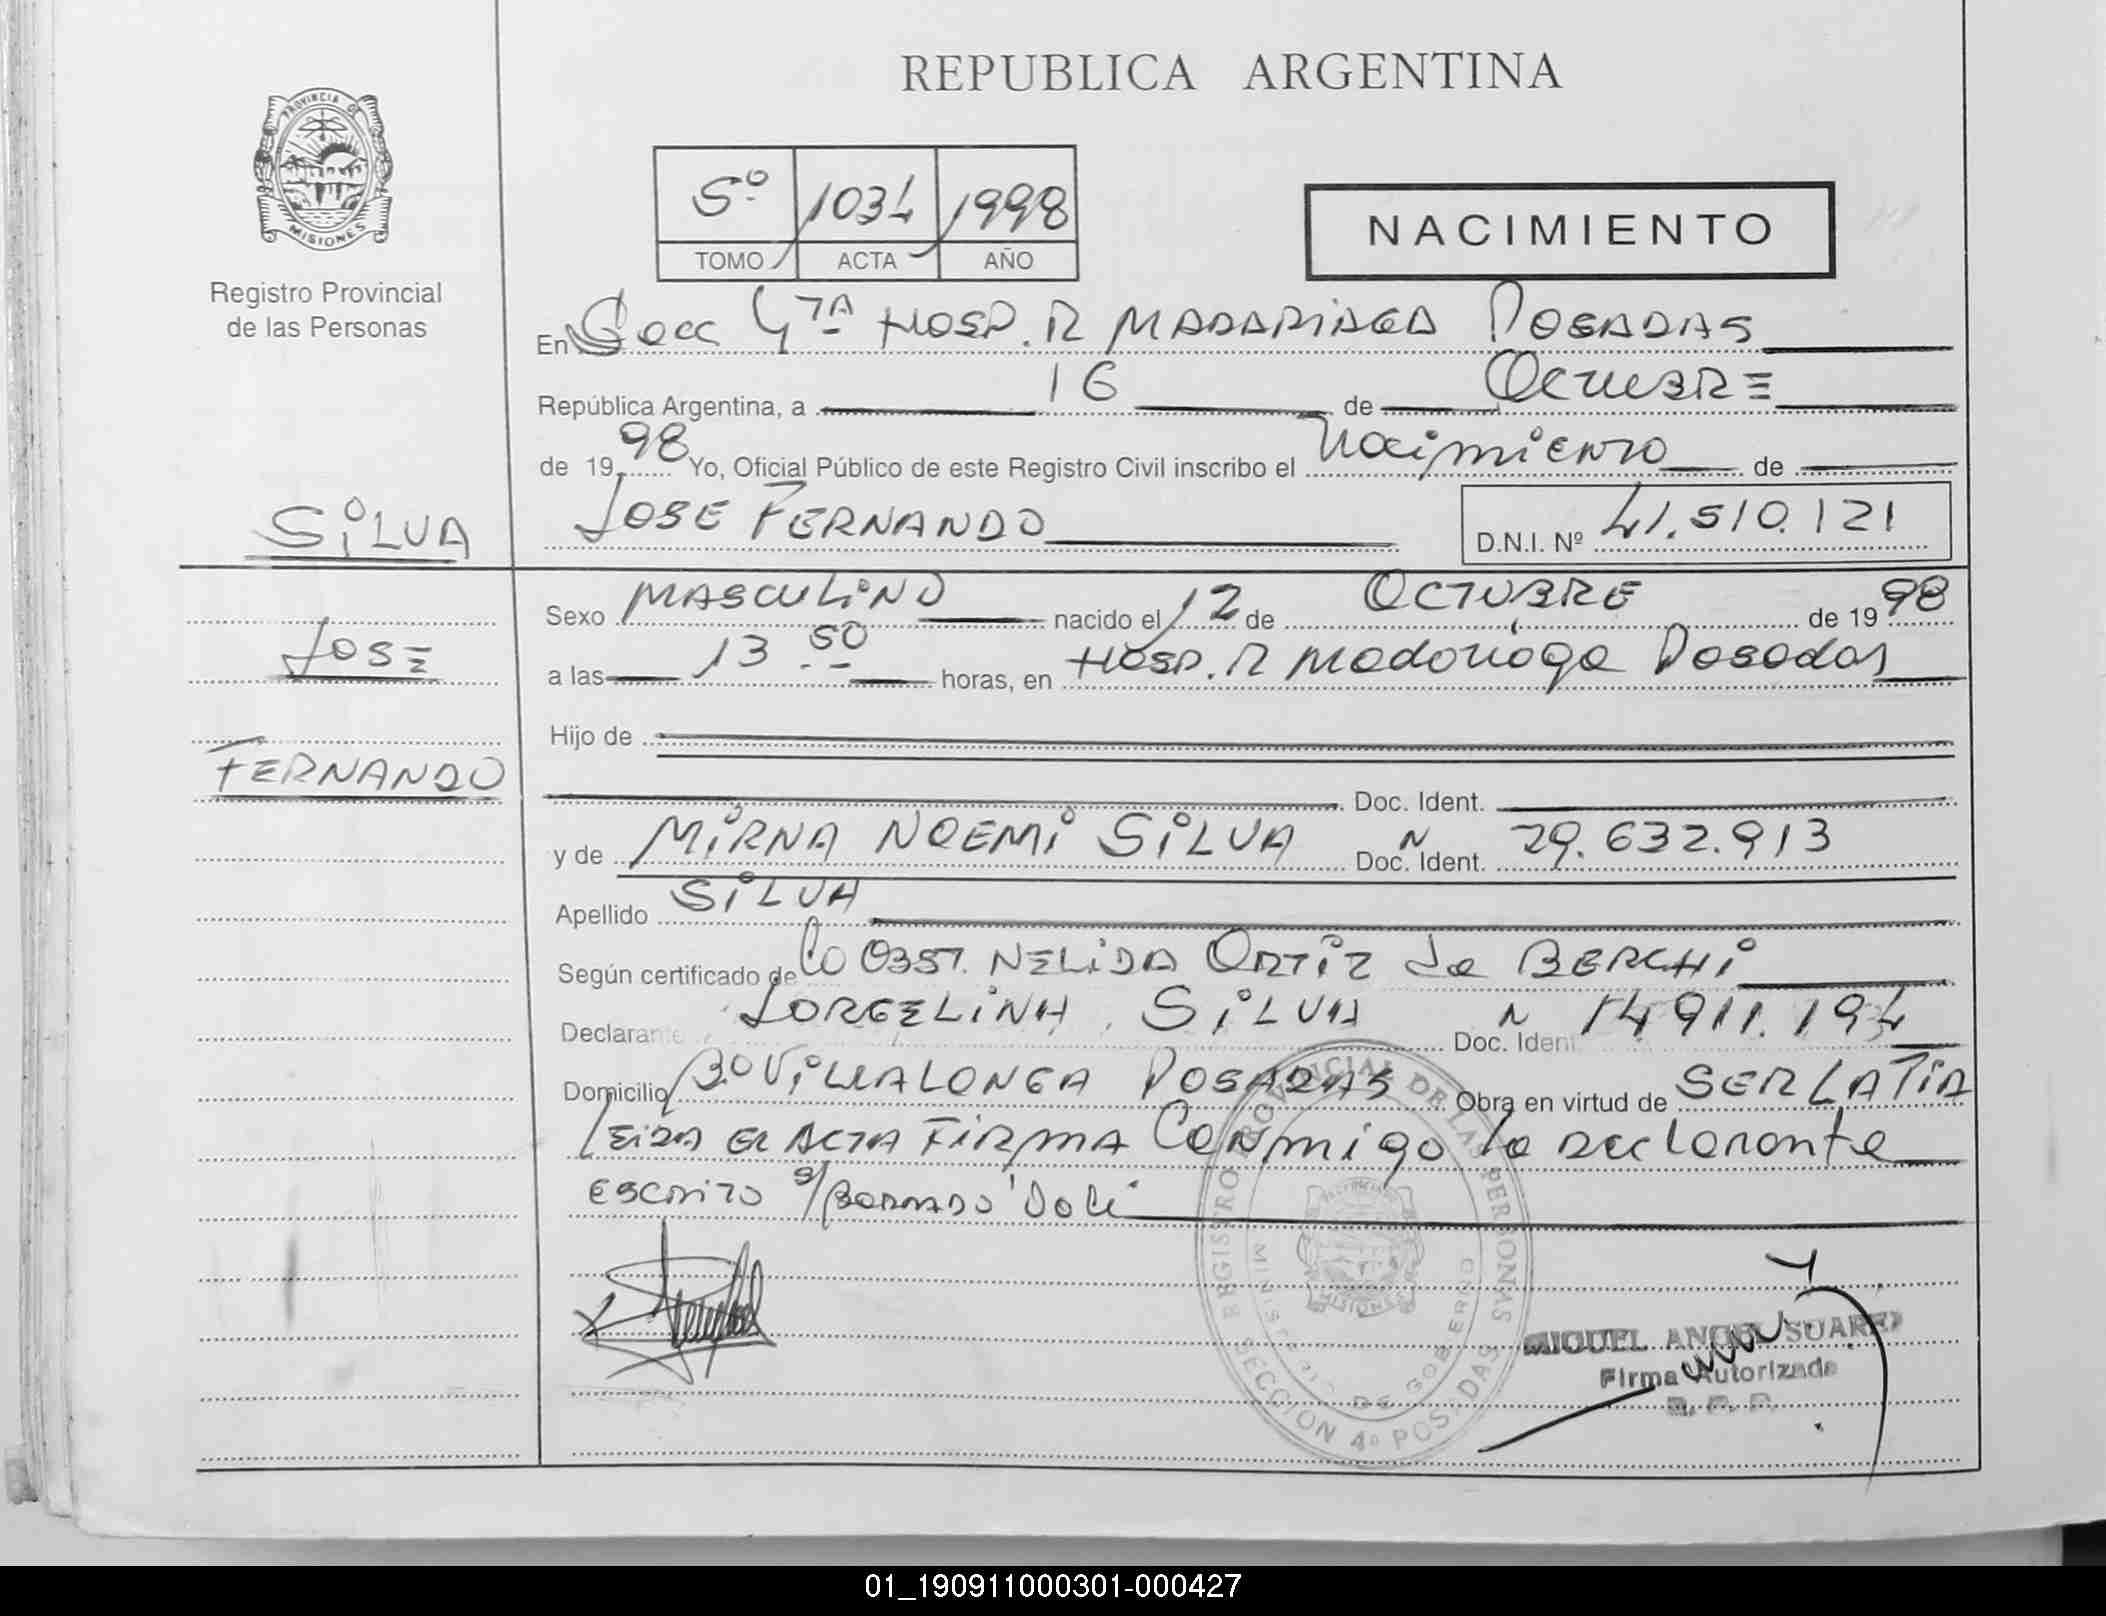 REPUBLICA ARGENTINA
PROVINCIA DE
MISIONES
Registro Provincial
de las Personas
5º 1034 1998
TOMO ACTA AÑO
NACIMIENTO
En Secc 4TA HOSP. R MADARIAGA POSADAS
República Argentina, a 16 de OCTUBRE
de 1998 Yo, Oficial Público de este Registro Civil inscribo el Nacimiento de
JOSE FERNANDO D.N.I. Nº 41.510.121
SILVA
JOSE
FERNANDO
Sexo MASCULINO nacido el 12 de OCTUBRE de 1998
a las 13.50 horas, en HOSP. R Madariaga Posadas
Hijo de
Doc. Ident.
y de MIRNA NOEMI SILVA Doc. Ident. N 29.632.913
Apellido SILVA
Según certificado de la OBST. NELIDA ORTIZ de BERCHI
Declarante JORGELINA SILVA Doc. Ident N 14.911.194
Domicilio Bº VILLALONGA POSADAS Obra en virtud de SER LA TIA
LEIDA EL ACTA FIRMA Conmigo la declarante
ESCRITO s/BORRADO "Vale"
REGISTRO PROVINCIAL DE LAS PERSONAS
MINISTERIO DE GOBIERNO
MISIONES
SECCION 4º POSADAS
MIGUEL ANGEL SUAREZ
Firma Autorizada
R. P. P.
01_190911000301-000427